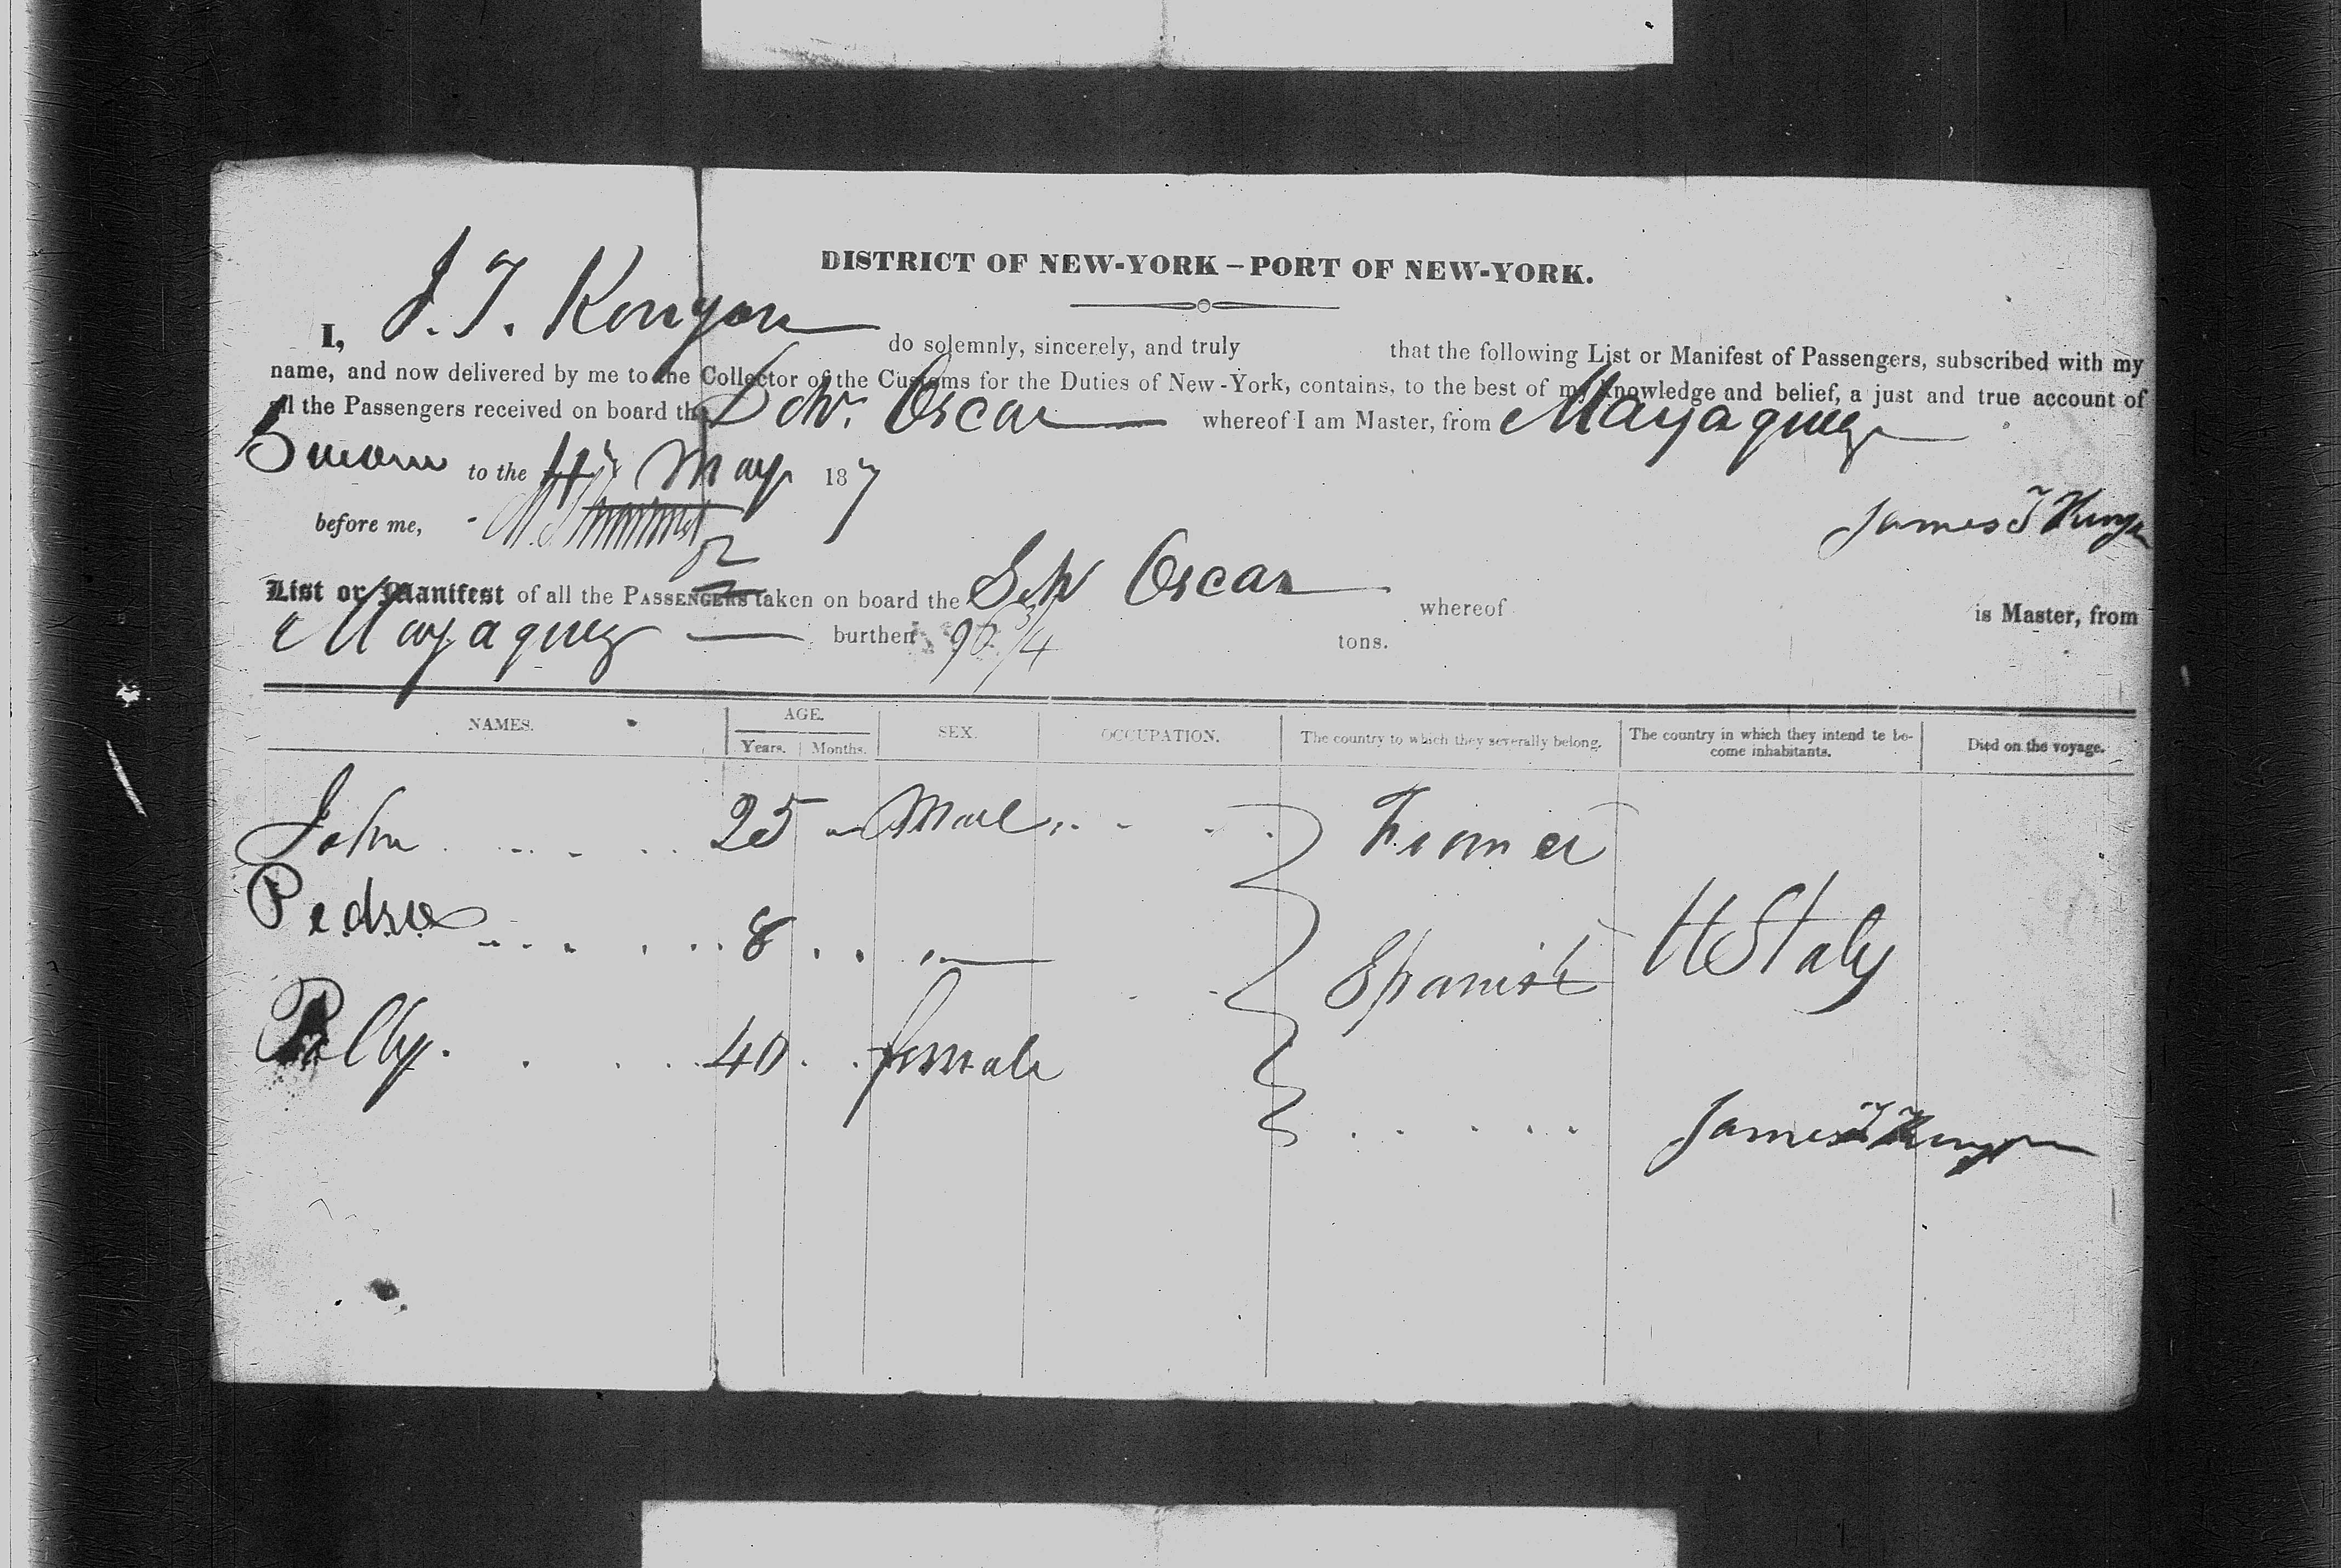 DISTRICT OF NEW-YORK – PORT OF NEW-YORK.
I, J. T. Kenyon do solemnly, sincerely, and truly that the following List or Manifest of Passengers, subscribed with my
name, and now delivered by me to the Collector of the Customs for the Duties of New-York, contains, to the best of my knowledge and belief, a just and true account of
all the Passengers received on board the Schr. Oscar whereof I am Master, from Mayaguez
Sworn to the May 18
before me,
James T Kenyon
List or Manifest of all the PASSENGERS taken on board the Schr Oscar whereof is Master, from
Mayaguez burthen 96 3/4 tons.
NAMES. AGE. SEX. OCCUPATION. The country to which they severally belong. The country in which they intend to be-come inhabitants. Died on the voyage.
Years. Months.
John 25 Male
Pedro 8 "
Spanish
Polly 40 female
James T Kenyon